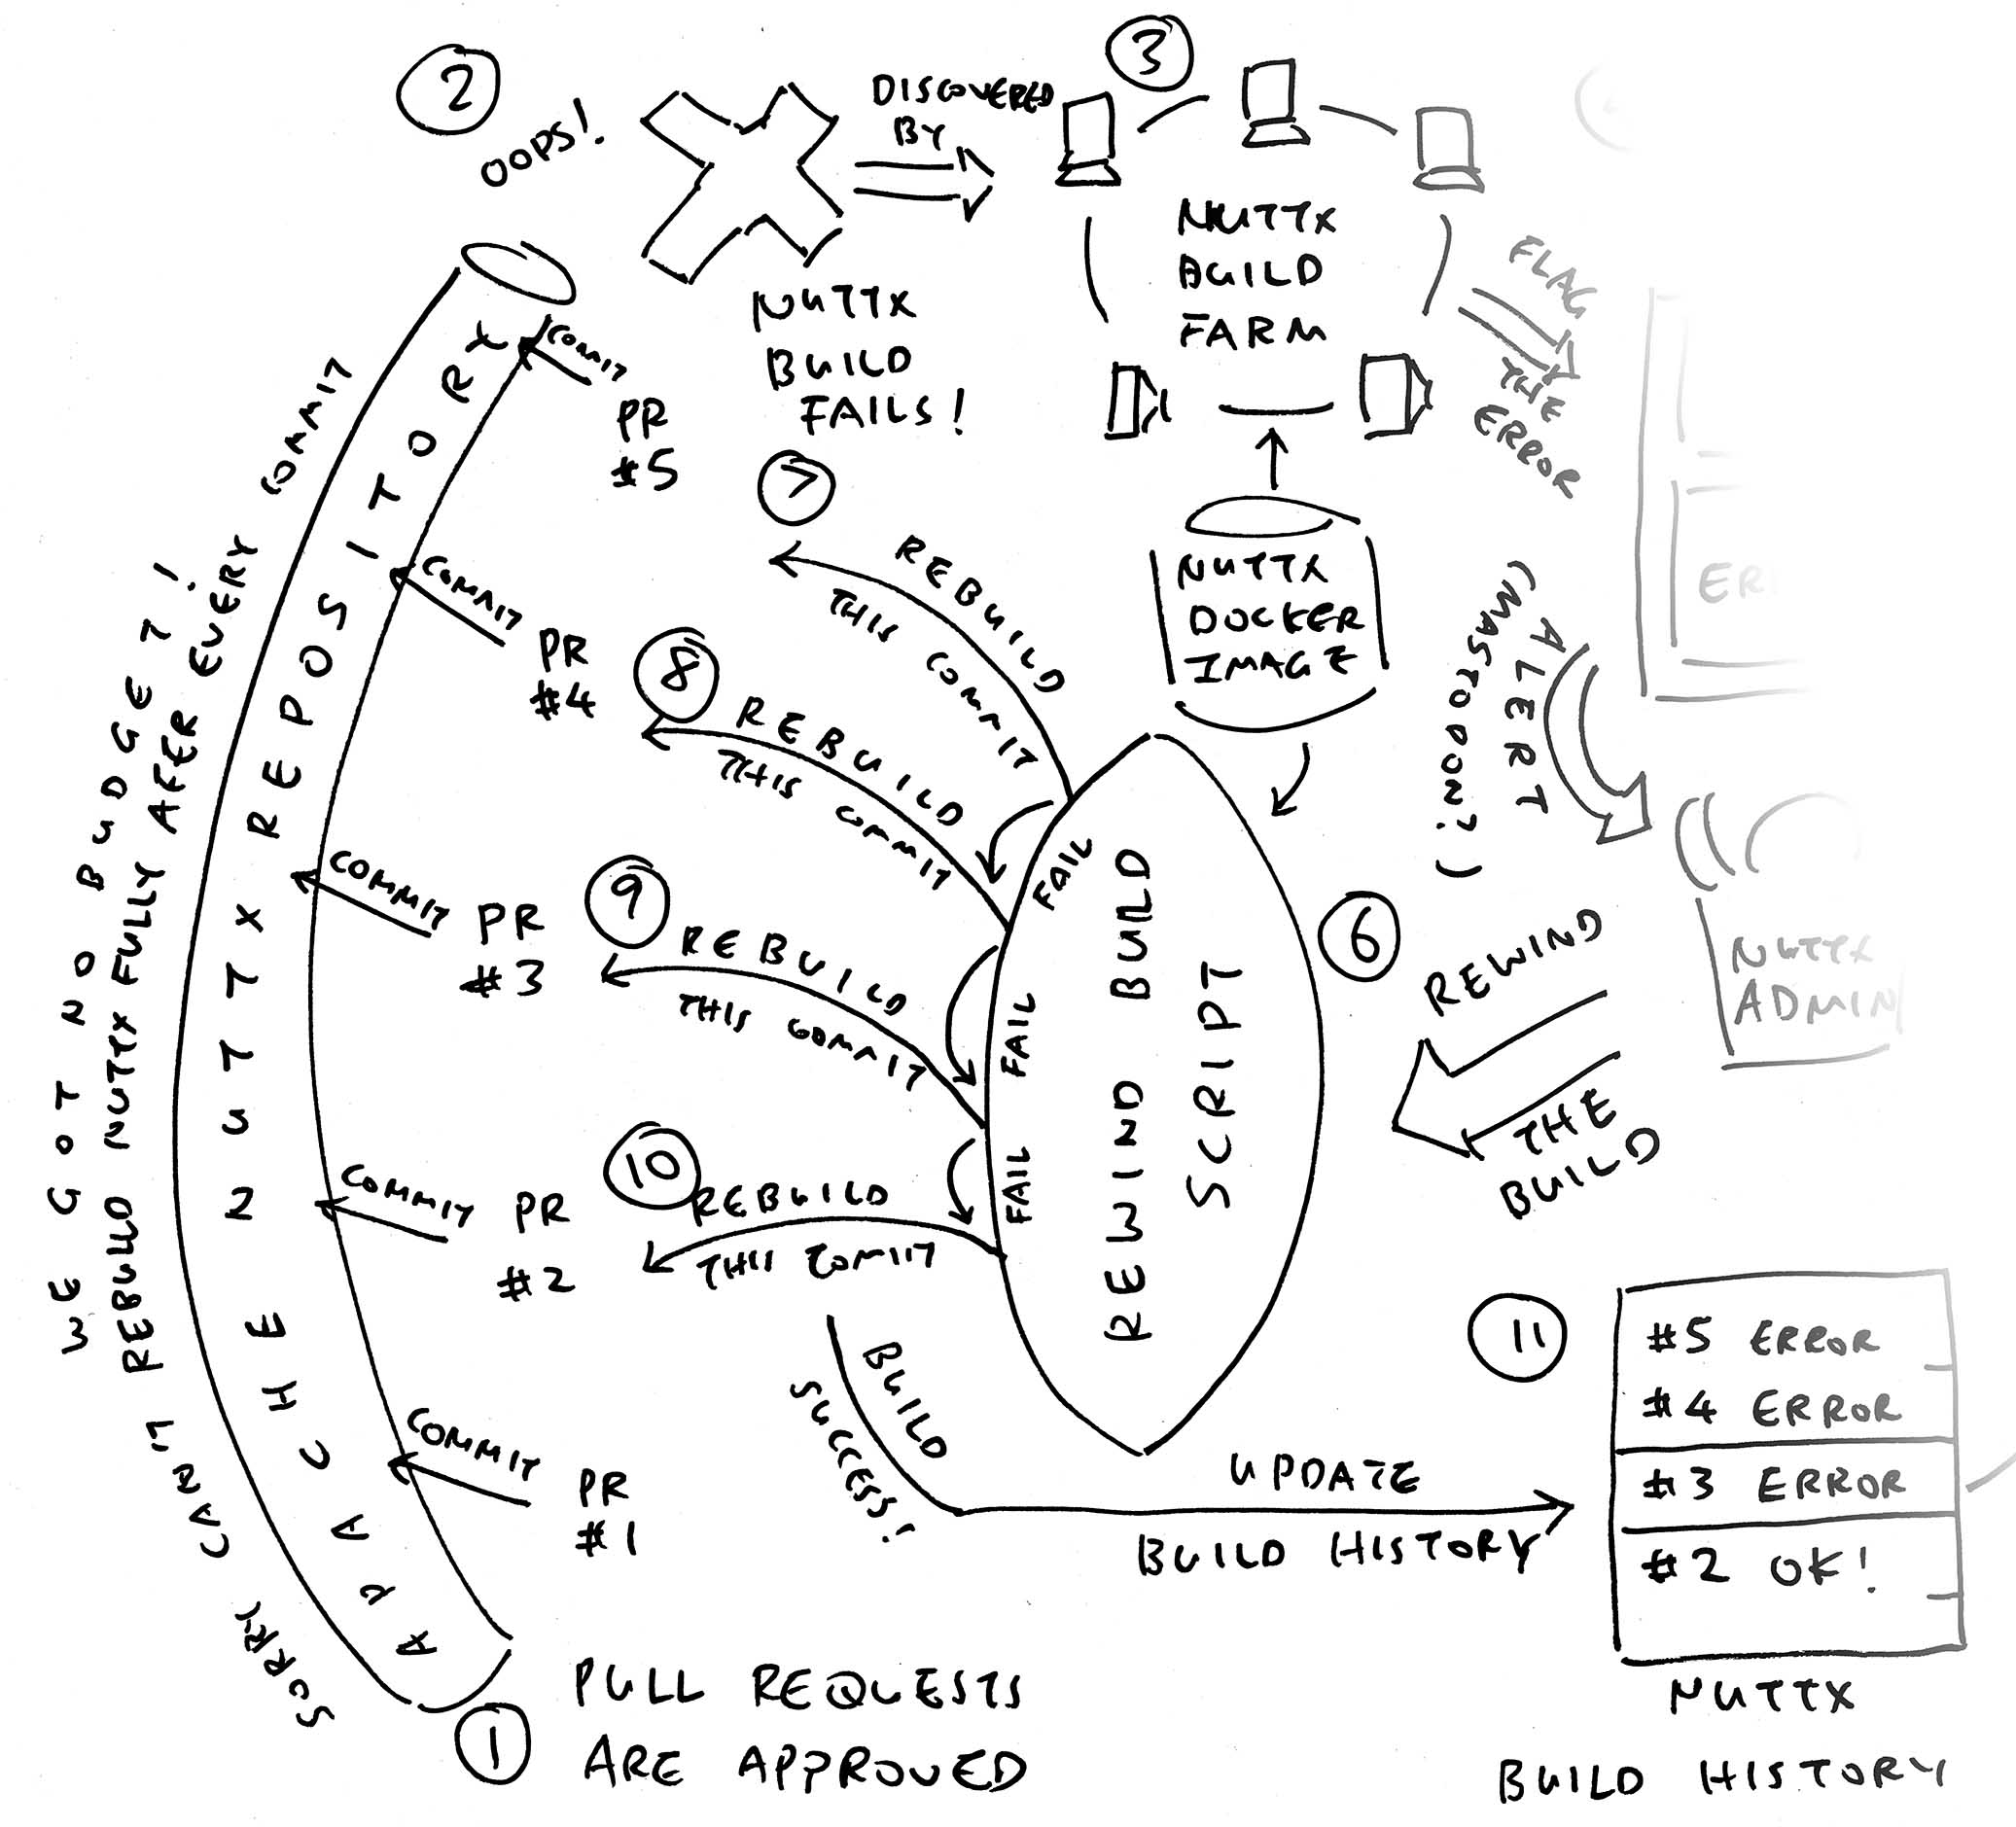 2
OOPS!
NUTTX
BUILD
FAILS!
DISCOVERED
BY
3
NUTTX
BUILD
FARM
FLAG
THE
ERROR
NUTTX
DOCKER
IMAGE
ALERT
(MASTODON?)
NUTTX
ADMIN
6
REWIND
THE
BUILD
REWIND BUILD
SCRIPT
7
REBUILD
THIS COMMIT
FAIL
8
REBUILD
THIS COMMIT
FAIL
9
REBUILD
THIS COMMIT
FAIL
10
REBUILD
THIS COMMIT
BUILD
SUCCESS!
UPDATE
BUILD HISTORY
11
#5 ERROR
#4 ERROR
#3 ERROR
#2 OK!
NUTTX
BUILD HISTORY
APACHE NUTTX REPOSITORY
COMMIT
PR
#5
COMMIT
PR
#4
COMMIT
PR
#3
COMMIT
PR
#2
COMMIT
PR
#1
1
PULL REQUESTS
ARE APPROVED
SORRY CAN'T REBUILD NUTTX FULLY AFER EVERY COMMIT
WE GOT NO BUDGET!